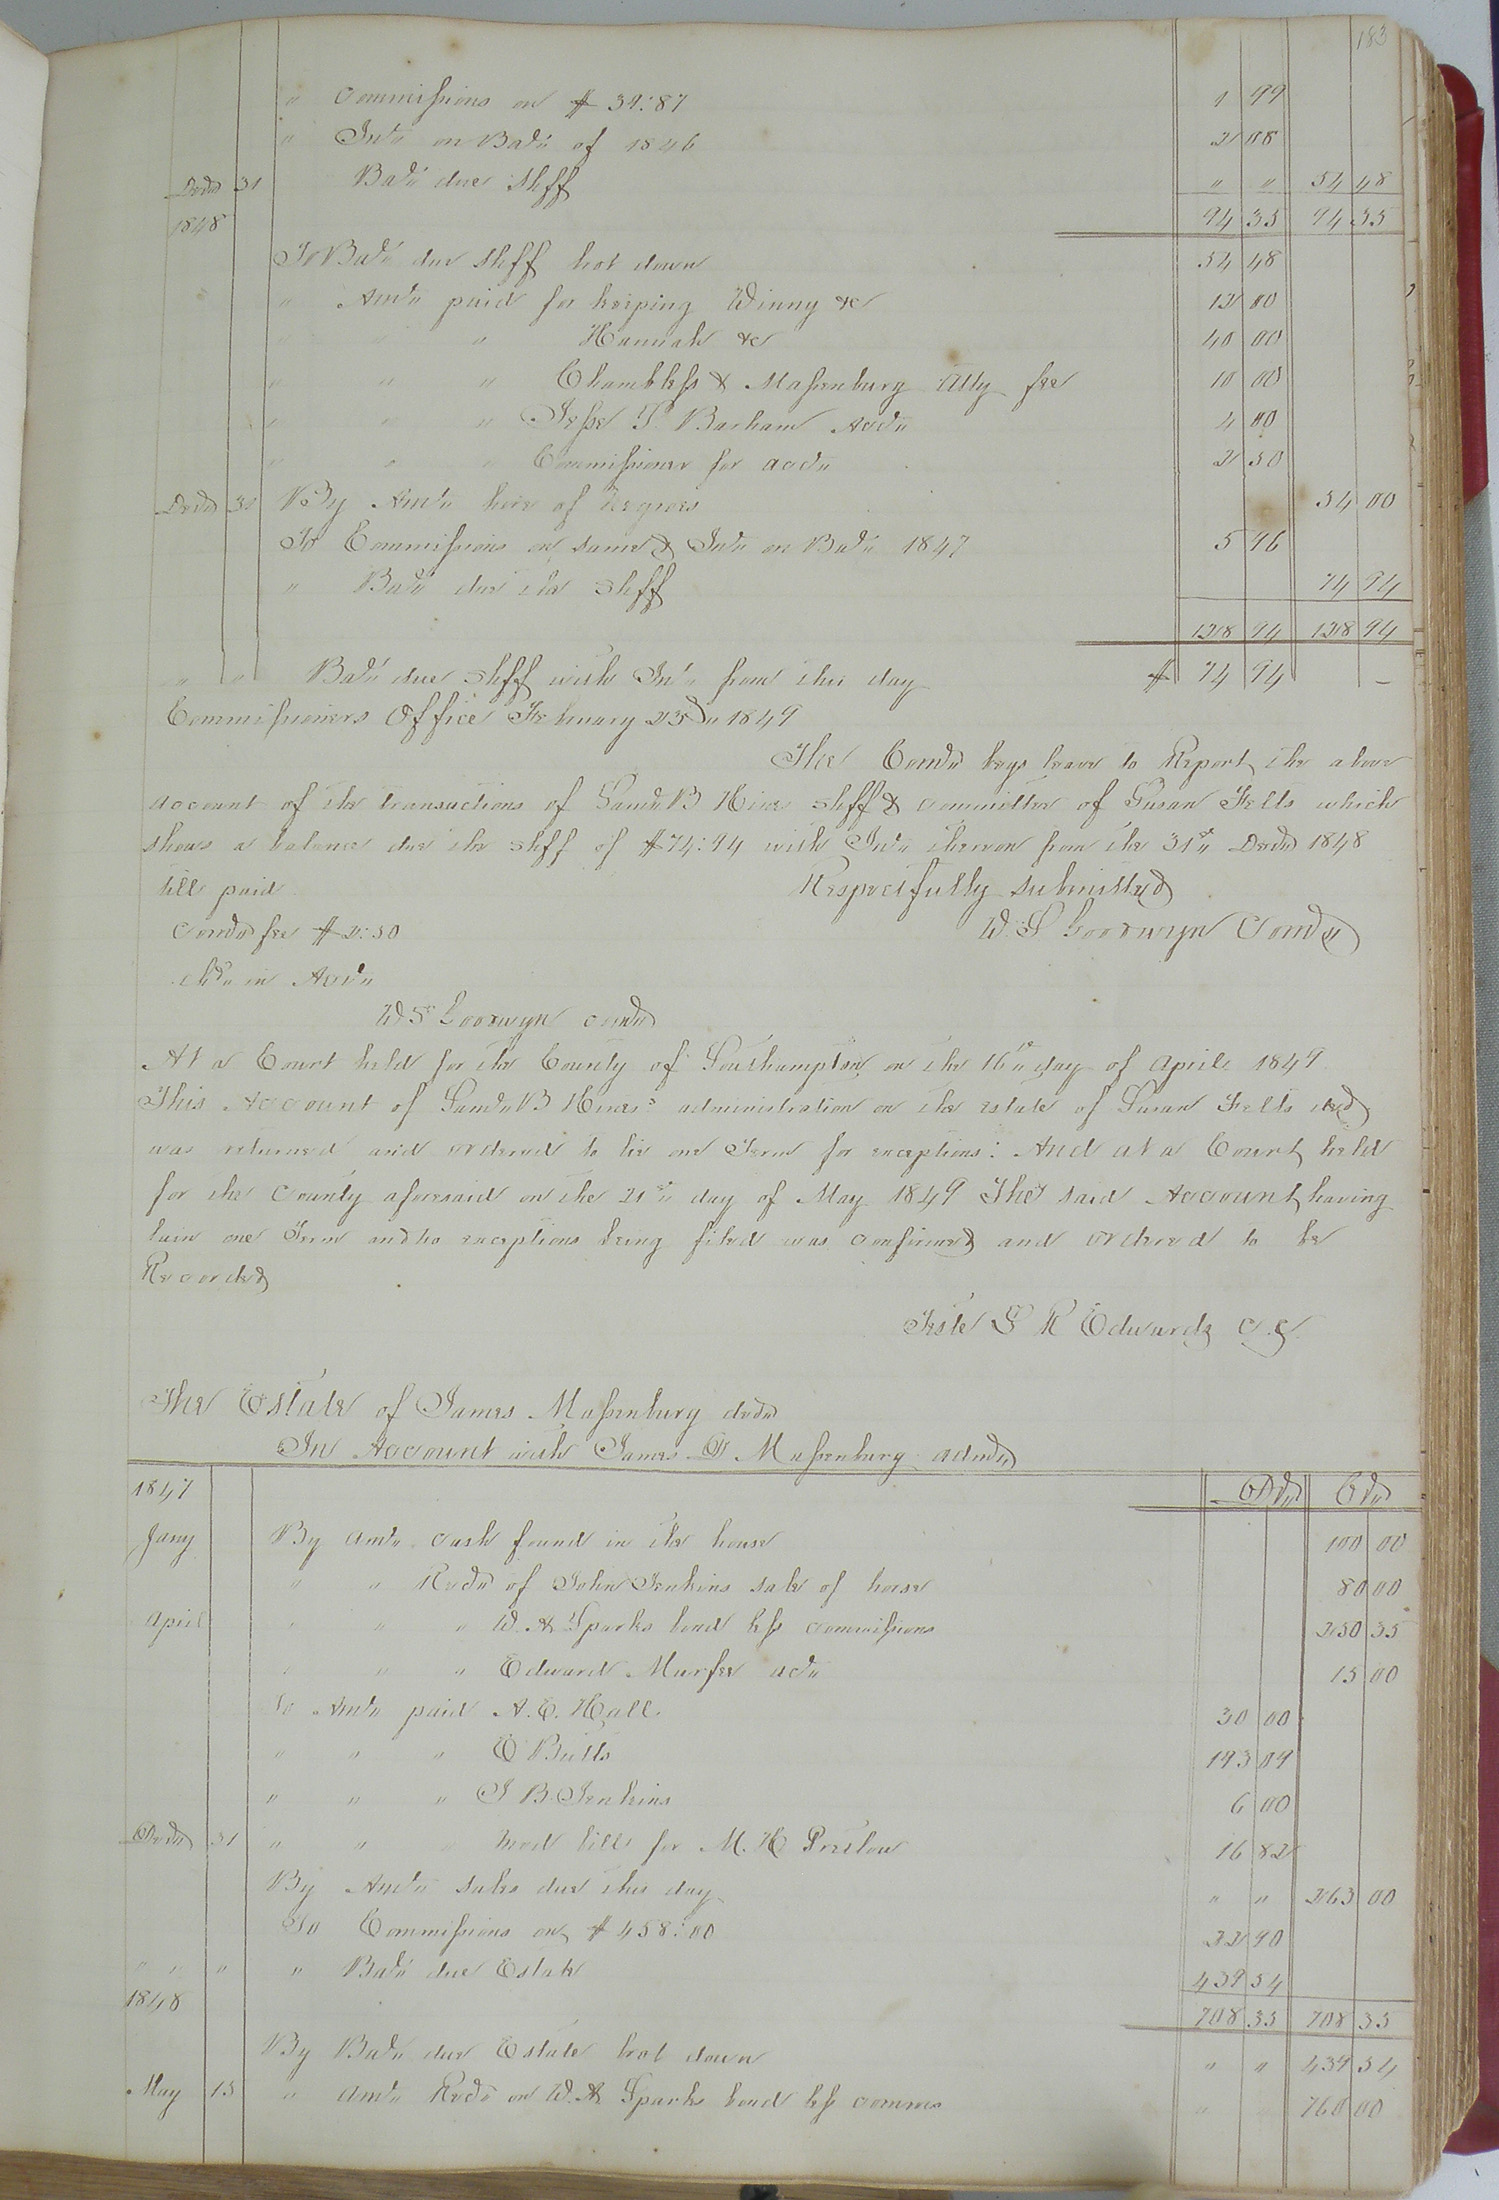 183
" Commissions on $39:87 1 99
" Intt on Balc of 1846 2 08
Decr 31 Balc due Shff " " 54 48
1848 94 35 94 35
To Balc due Shff brot down 54 48
" Amt paid for keeping Winny &c 12 00
" " " Hannah &c 40 00
" " " Chambless & Massenburg Atty fee 10 00
" " " Jesse T. Barham Acct 4 00
" " " Commissioner for acct 2 50
Decr 31 By Amt hire of negroes 54 00
To Commissions on same & Intt on Balc 1847 5 96
" Balc due the Shff 74 94
128 94 128 94
" " Balc due Shff with Intt from this day $ 74 94 –
Commissioners Office February 23d 1849
The Comr begs leave to Report the above
account of the transactions of Saml B Hines Shff & committee of Susan Felts which
shows a balance due the Shff of $74:94 with Intt thereon from the 31st Decr 1848
till paid Respectfully submitted
Comr fee $2:50 W. S Goodwyn Comr
chd in Acct
W S Goodwyn comr
At a Court held for the County of Southampton on the 16th day of April 1849
This Account of Saml B Hines's administration on the estate of Susan Felts decd
was returned and ordered to lie one Term for exceptions: And at a Court held
for the County aforesaid on the 21st day of May 1849 The said Account having
lain one Term and no exceptions being filed was confirmed and ordered to be
Recorded
Teste L R Edwards C.C.
The Estate of James Massenburg decd
In Account with James D Massenburg admr
1847 Dr Cr
Jany By amt cash found in the house 100 00
" " Recd of John Jenkins sale of horse 80 00
April " " " W. A Sparks bond less commissions 250 35
" " " Edward Murfee act 15 00
To Amt paid A. E. Hall 30 00
" " " E Butts 193 09
" " " J B Jenkins 6 00
Decr 31 " " " med bills for M. H Preslow 16 82
By Amt sales due this day " " 263 00
To Commissions on $458:00 22 90
" " " " Balc due Estate 439 54
1848 708 35 708 35
By Balc due Estate brot down " " 439 54
May 15 " amt Recd on W. A Sparks bond less comms " 760 00